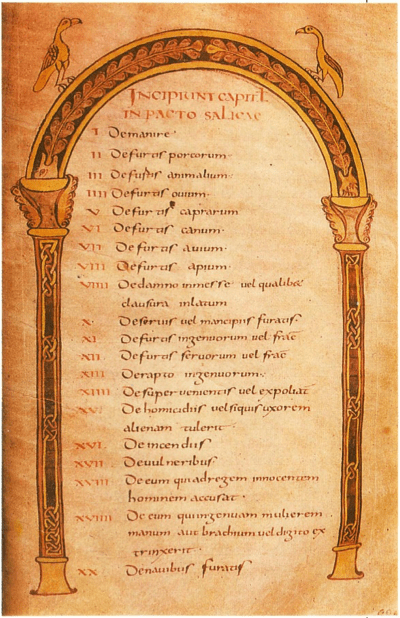 INCIPIUNT CAPITL
IN PACTO SALICAE
I De manire
II De furtis porcorum
III De furtis animalium
IIII De furtis ovium
V De furtis caprarum
VI De furtis canum
VII De furtis avium
VIII De furtis apium
VIIII De damno in messe vel qualibec
clausura inlatum
X De servis vel mancipiis furatis
XI De furtis ingenuorum vel frac
XII De furtis servorum vel frac
XIII De rapto ingenuorum
XIIII De supervenientis vel expoliat
XV De homicidiis vel si quis uxorem
alienam tulerit
XVI De incendiis
XVII De vulneribus
XVIII De eum qui ad regem innocentem
hominem accusat
XVIIII De eum qui ingenuam mulierem
manum aut brachium vel digito ex
trinxerit
XX De navibus furatis